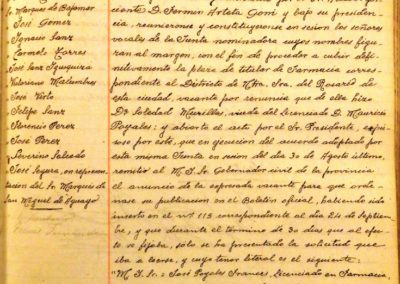 Sr. Marqués de Bajamar
José Gomez
Ignacio Sanz
Carmelo Torres
José Sanz Igualguira
Valeriano Malumbres
José
Felipe Sanz
Florencio Perez
José Perez
Severino Salcedo
José Segura, en represen-
tacion del Sr. Marqués de
San Miguel de Aguayo
D. Fermin Arteta Goñi y bajo su presiden-
cia, reunieronse y constituyeronse en sesion los señores
vocales de la Junta nominadora cuyos nombres figu-
ran al margen, con el fin de proceder a cubrir defi-
nitivamente la plaza de titular de Farmacia corres-
pondiente al Distrito de Ntra. Sra. del Rosario de
esta ciudad, vacante por renuncia que de ella hizo
Dª Soledad Murillas, viuda del Licenciado D. Mauricio
Poyales; y abierto el acto por el Sr. Presidente, expu-
sose por este, que en ejecucion del acuerdo adoptado por
esta misma Junta en sesion del dia 30 de Agosto último,
remitió al M. I. Sr. Gobernador civil de la provincia
el anuncio de la expresada vacante para que orde-
nase su publicacion en el Boletin oficial, habiendo sido
inserto en el nº 115 correspondiente al dia 24 de Septiem-
bre, y que durante el término de 30 dias que al efec-
to se fijaba, sólo se ha presentado la solicitud que
iba a leerse, y cuyo tenor literal es el siguiente:
"M. I. Sr. = José Poyales Frances, Licenciado en Farmacia,